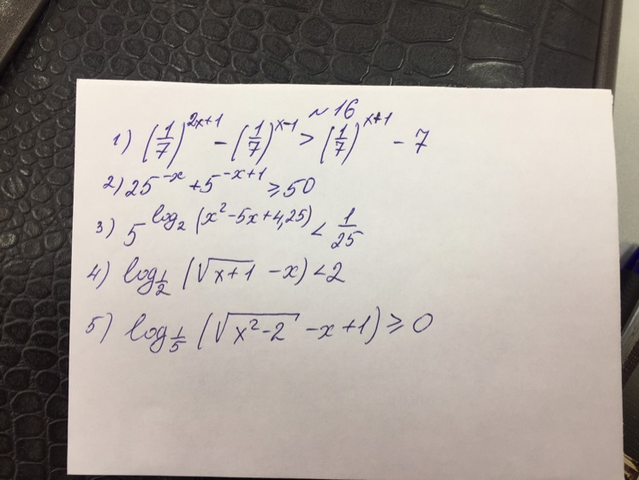 ~ 16
1) (1/7)^(2x+1) - (1/7)^(x-1) > (1/7)^(x+1) - 7
2) 25^(-x) + 5^(-x+1) ≥ 50
3) 5^(log₂(x²-5x+4,25)) < 1/25
4) log_(1/2) (√(x+1) - x) < 2
5) log_(1/5) (√(x²-2) - x + 1) ≥ 0